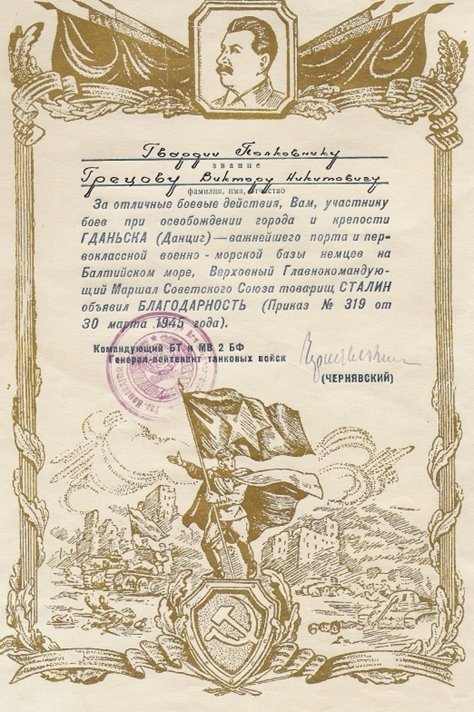 Гвардии Полковнику
звание
Грецову Виктору Никитовичу
фамилия, имя, отчество
За отличные боевые действия, Вам, участнику
боев при освобождении города и крепости
ГДАНЬСКА (Данциг) — важнейшего порта и пер-
воклассной военно-морской базы немцев на
Балтийском море, Верховный Главнокомандую-
щий Маршал Советского Союза товарищ СТАЛИН
объявил БЛАГОДАРНОСТЬ (Приказ № 319 от
30 марта 1945 года).
Командующий БТ и МВ 2 БФ
Генерал-лейтенант танковых войск
(ЧЕРНЯВСКИЙ)